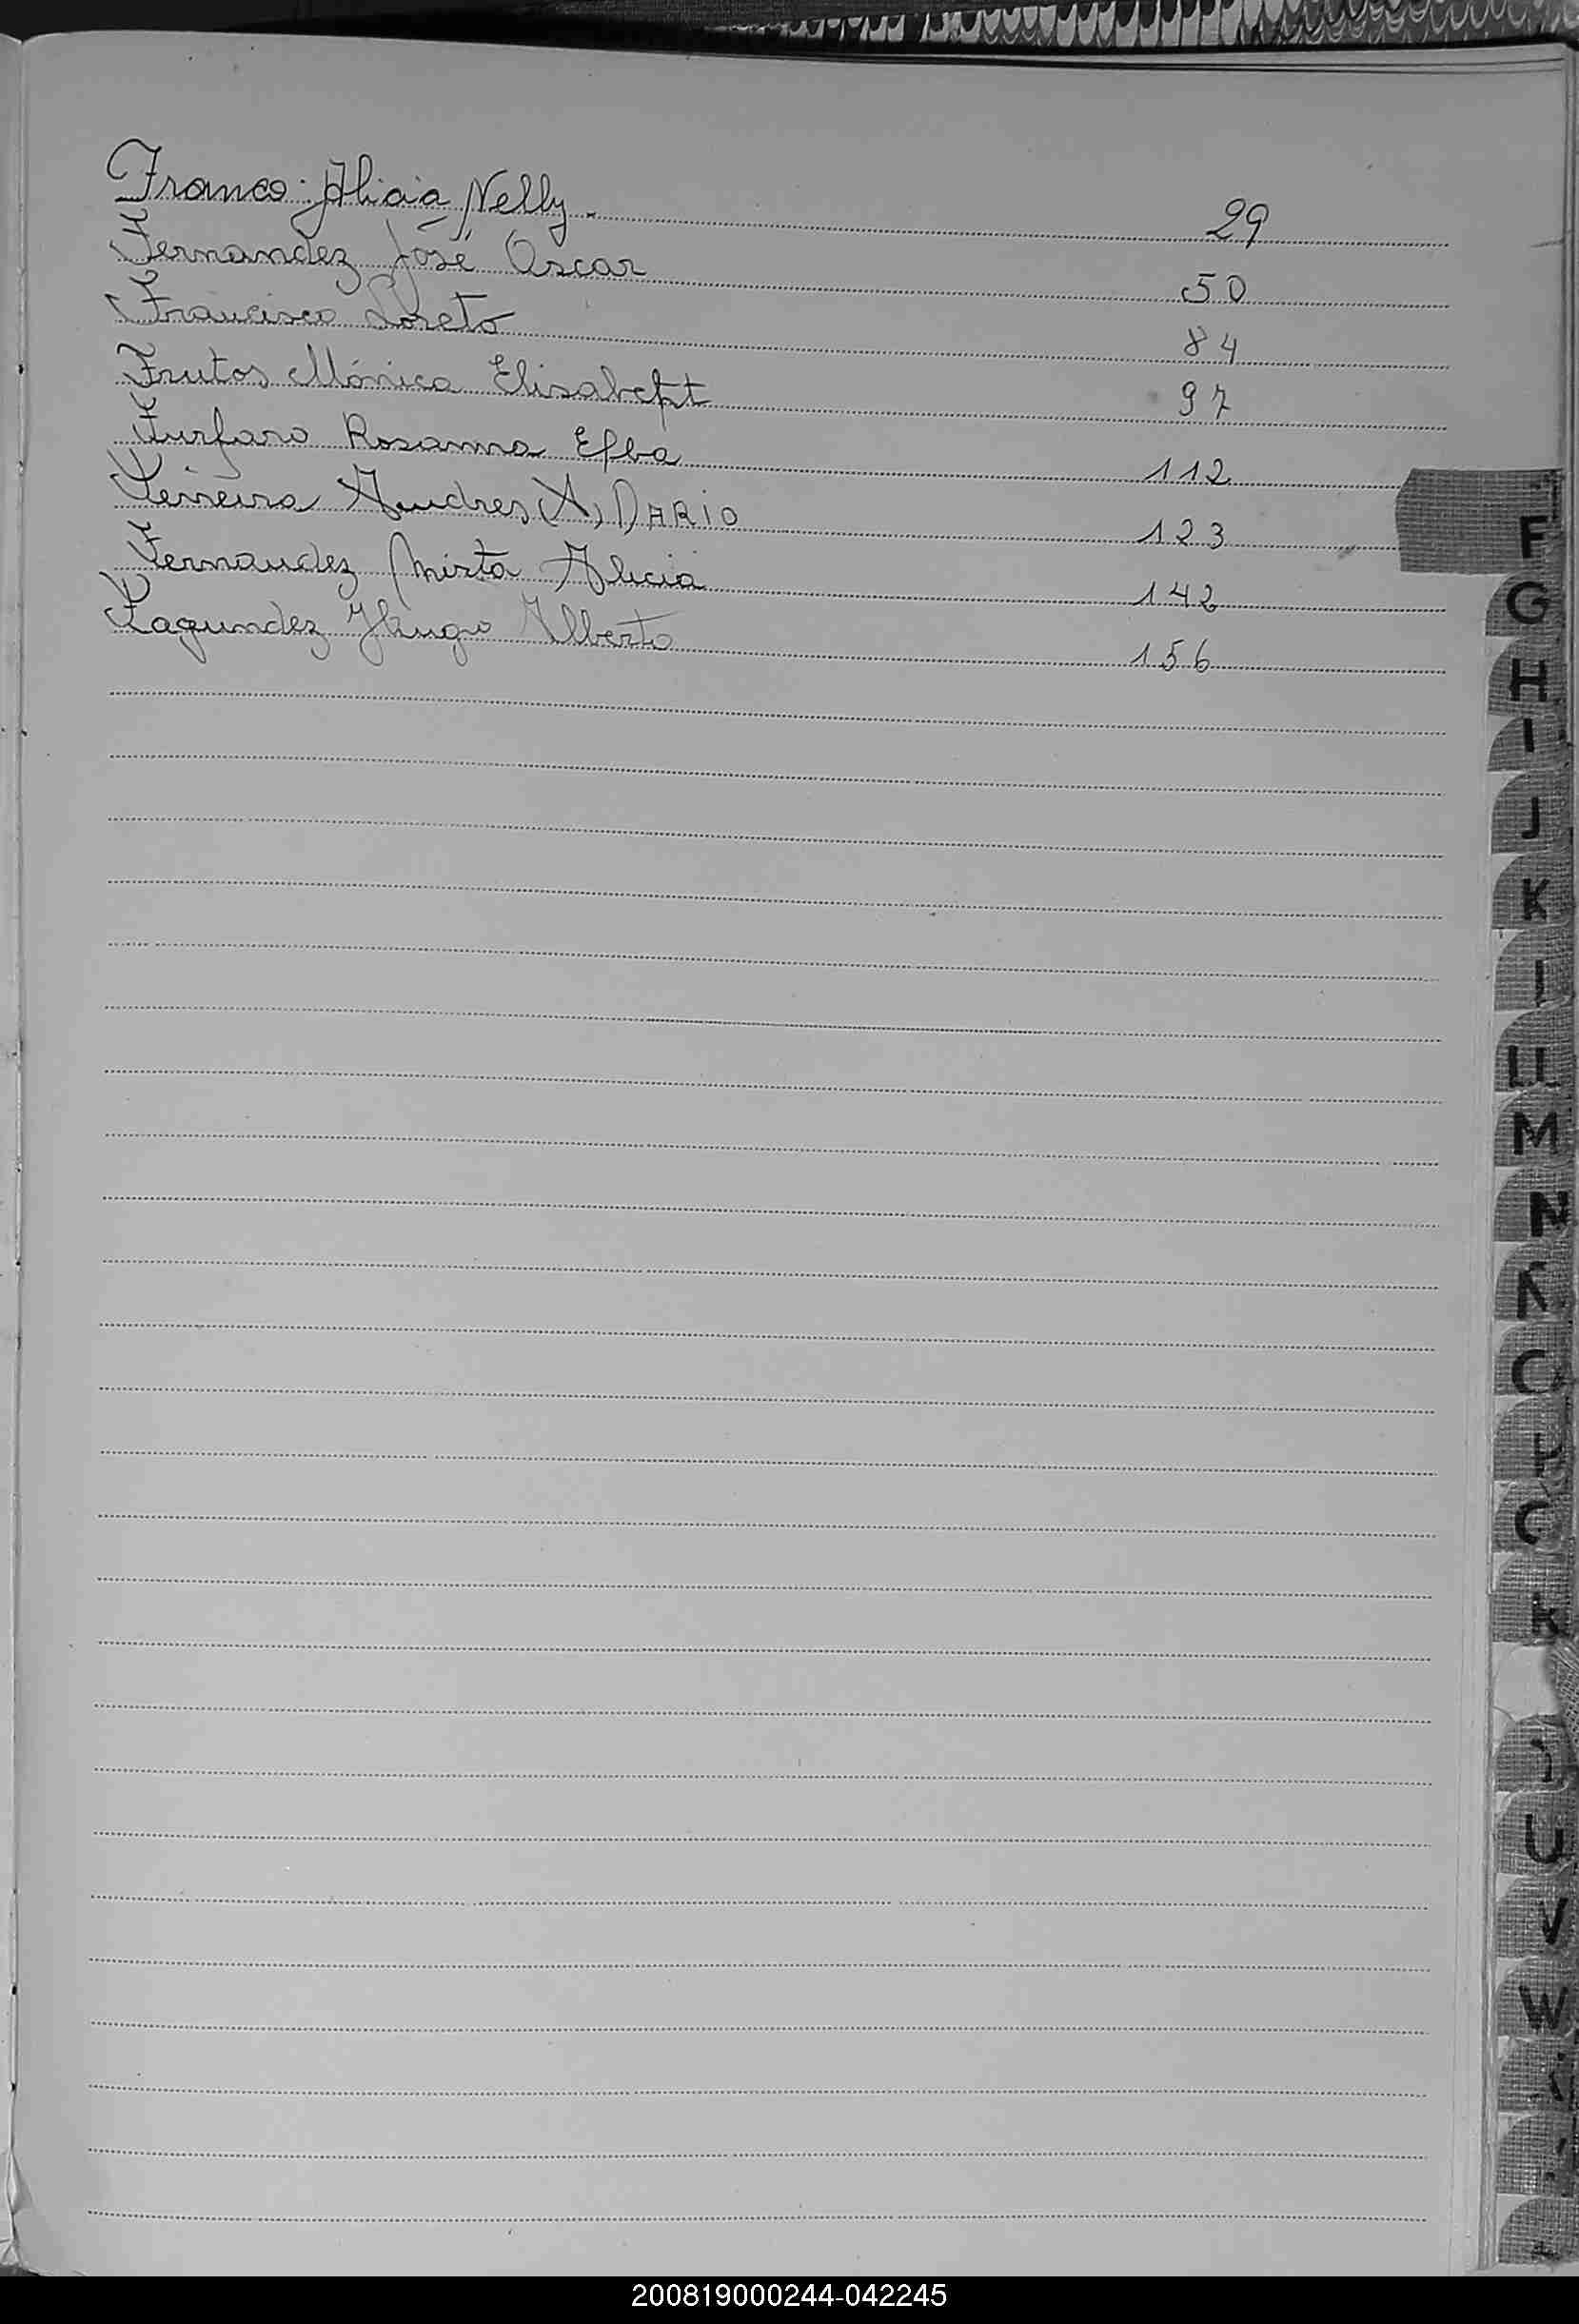 Franco Alicia Nelly. 29
Fernandez José Oscar 50
Francisco Loreto 84
Frutos Mónica Elisabeht 97
Furfaro Rosanna Elba 112
Ferreira Andres (A) DARIO 123
Fernandez Mirta Alicia 142
Fagundez Hugo Alberto 156
F
G
H
I
J
K
L
LL
M
N
Ñ
O
P
Q
R
U
V
W
200819000244-042245